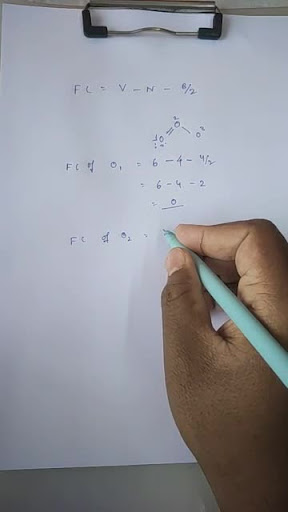 FC = V - N - B/2
2
1O = O - O3
FC of O1 = 6 - 4 - 4/2
= 6 - 4 - 2
= 0
FC of O2 =